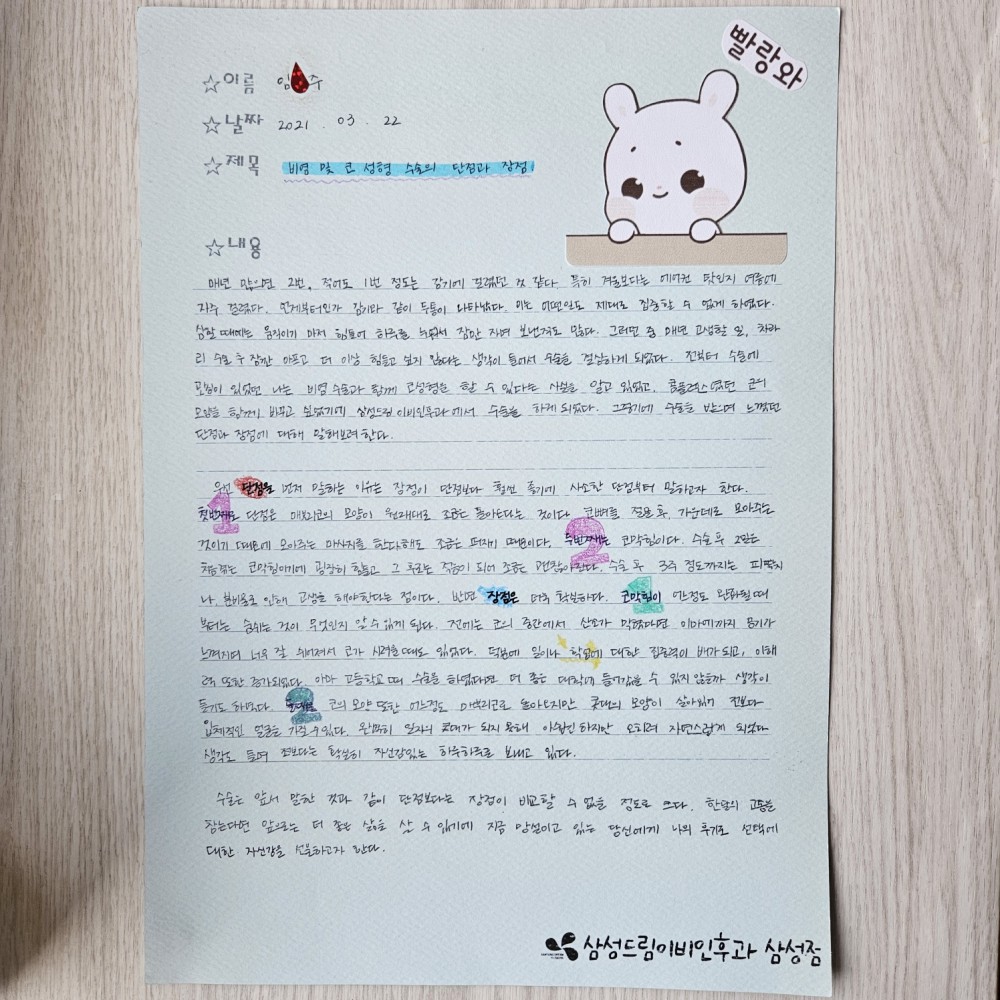 빨랑와
☆이름 임 주
☆날짜 2021 . 03 . 22
☆제목 비염 및 코 성형 수술의 단점과 장점
☆내용
매년 많으면 2번, 적어도 1번 정도는 감기에 걸렸던 것 같다. 특히 겨울보다는 에어컨 탓인지 여름에
자주 걸렸다. 언제부터인가 감기와 같이 두통이 나타났다. 이는 어떤일도 제대로 집중할 수 없게 하였다.
심할 때에는 움직이기 마저 힘들어 하루를 누워서 잠만 자면 보낸적도 많다. 그러던 중 매년 고생할 일, 차라
리 수술 후 잠깐 아프고 더 이상 힘들고 싶지 않다는 생각이 들어서 수술을 결심하게 되었다. 전부터 수술에
관심이 있었던 나는 비염 수술과 함께 코성형을 할 수 있다는 사실을 알고 있었고, 콤플렉스였던 코의
모양을 함께 바꾸고 싶었기에 삼성드림 이비인후과에서 수술을 하게 되었다. 그렇기에 수술을 받으며 느꼈던
단점과 장점에 대해 말해보려한다.
우선 단점을 먼저 말하는 이유는 장점이 단점보다 훨씬 좋기에 사소한 단점부터 말하고자 한다.
1 첫번째로 단점은 매부리코의 모양이 원래대로 조금은 돌아온다는 것이다. 코뼈를 절골 후, 가운데로 모아주는
것이기 때문에 모아주는 마사지를 한다해도 조금은 퍼지기 때문이다. 2 두번째는 코막힘이다. 수술 후 2일은
처음겪는 코막힘이기에 굉장히 힘들고 그 후로는 적응이 되어 조금은 괜찮아진다. 수술 후 3주 정도까지는 피딱지
나, 분비물로 인해 고생을 해야한다는 점이다. 반면 장점은 더욱 확실하다. 1 코막힘이 어느정도 완화될 때
부터는 숨쉬는 것이 무엇인지 알 수 있게 된다. 전에는 코의 중간에서 산소가 막혔다면 이마에까지 공기가
느껴지며 너무 잘 쉬어져서 코가 시려울때도 있었다. 덕분에 일이나 학업에 대한 집중력이 배가 되고, 이해
력 또한 증가되었다. 아마 고등학교 때 수술을 하였다면 더 좋은 대학에 들어갔을 수 있지 않을까 생각이
들기도 하였다. 2 둘째로 코의 모양 또한 어느정도 매부리코로 돌아오지만 콧대의 모양이 살아있기 전보다
입체적인 얼굴을 가질 수 있다. 완벽히 일자의 콧대가 되지 못해 아쉽긴하지만 오히려 자연스럽게 되었다
생각도 들며 전보다는 확실히 자신감있는 하루하루를 보내고 있다.
수술은 앞서 말한 것과 같이 단점보다는 장점이 비교할 수 없을 정도로 크다. 한달의 고통을
참는다면 앞으로는 더 좋은 삶을 살 수 있기에 지금 망설이고 있는 당신에게 나의 후기로 선택에
대한 자신감을 선물하고자 한다.
삼성드림이비인후과 삼성점